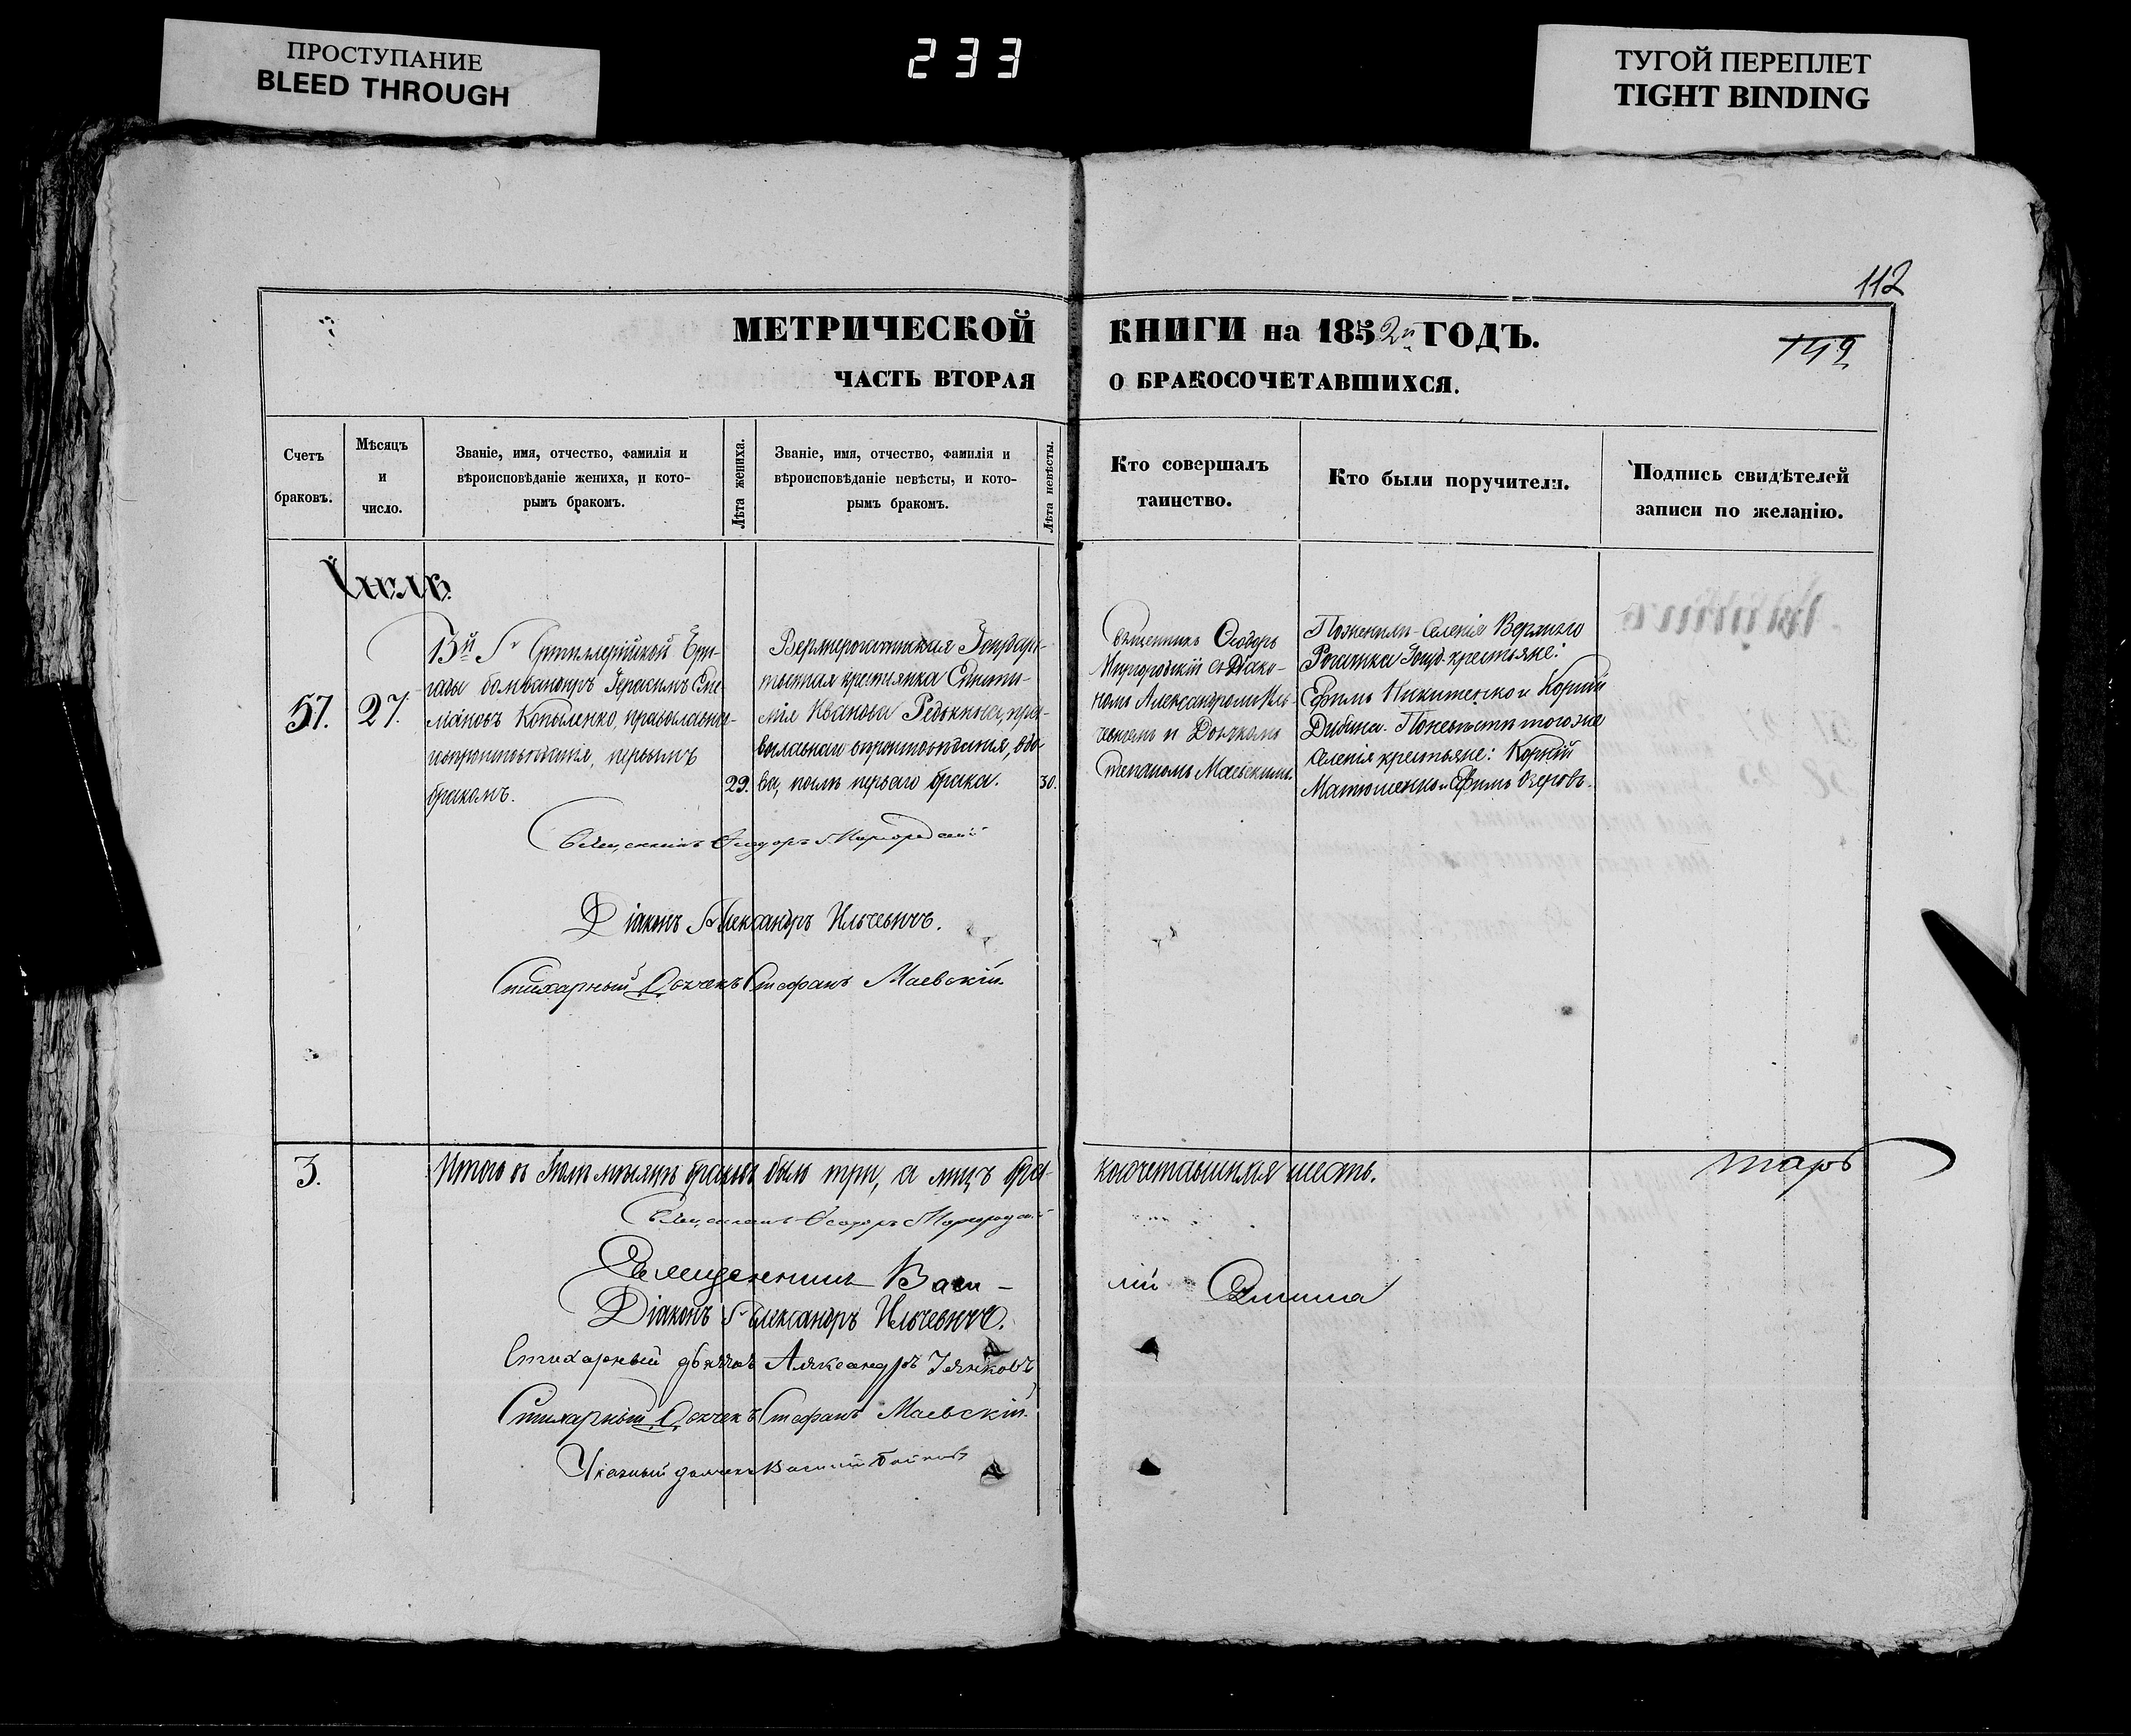 ПРОСТУПАНИЕ
BLEED THROUGH
233
ТУГОЙ ПЕРЕПЛЕТ
TIGHT BINDING
112
МЕТРИЧЕСКОЙ КНИГИ на 1852й ГОДЪ.
142
ЧАСТЬ ВТОРАЯ О БРАКОСОЧЕТАВШИХСЯ.
Счетъ
браковъ.
Мѣсяцъ
и
число.
Званіе, имя, отчество, фамилія и
вѣроисповѣданіе жениха, и кото-
рымъ бракомъ.
Лѣта жениха.
Званіе, имя, отчество, фамилія и
вѣроисповѣданіе невѣсты, и кото-
рымъ бракомъ.
Лѣта невѣсты.
Кто совершалъ
таинство.
Кто были поручители.
Подпись свидѣтелей
записи по желанію.
Іюль.
57.
27.
13й Артиллерійской Бри-
гады бомбандиръ Герасимъ Симе-
Копыленко, православна-
первымъ
бракомъ.
29.
крестьянка
Иванова
вдо-
ва, послѣ перваго брака.
30.
Священникъ Ѳеодоръ
Миргородскій съ Діако-
номъ Александромъ Иль-
чевичемъ и Дьячкомъ
Степаномъ Маевскимъ.
селенія
Рогачика крестьяне:
Ефимъ Никитенко и Корній
Дибина. По невѣстѣ тогоже
селенія крестьяне: Корній
Матюшенко и Ефимъ
Священникъ Ѳеодоръ Миргородскій
Діаконъ Александръ Ильчевичъ.
Стихарный Дьячекъ Стефанъ Маевскій.
3.
Итого въ Іюлѣ мѣсяцѣ браковъ было три, а лицъ бра-
косочетавшихся шесть.
Священникъ Ѳеодоръ Миргородскій
Священникъ Васи-
лій
Діаконъ Александръ Ильчевичъ.
Стихарный дьячекъ Александръ
Стихарный Дьячекъ Стефанъ Маевскій.
Указный дьячекъ Василій